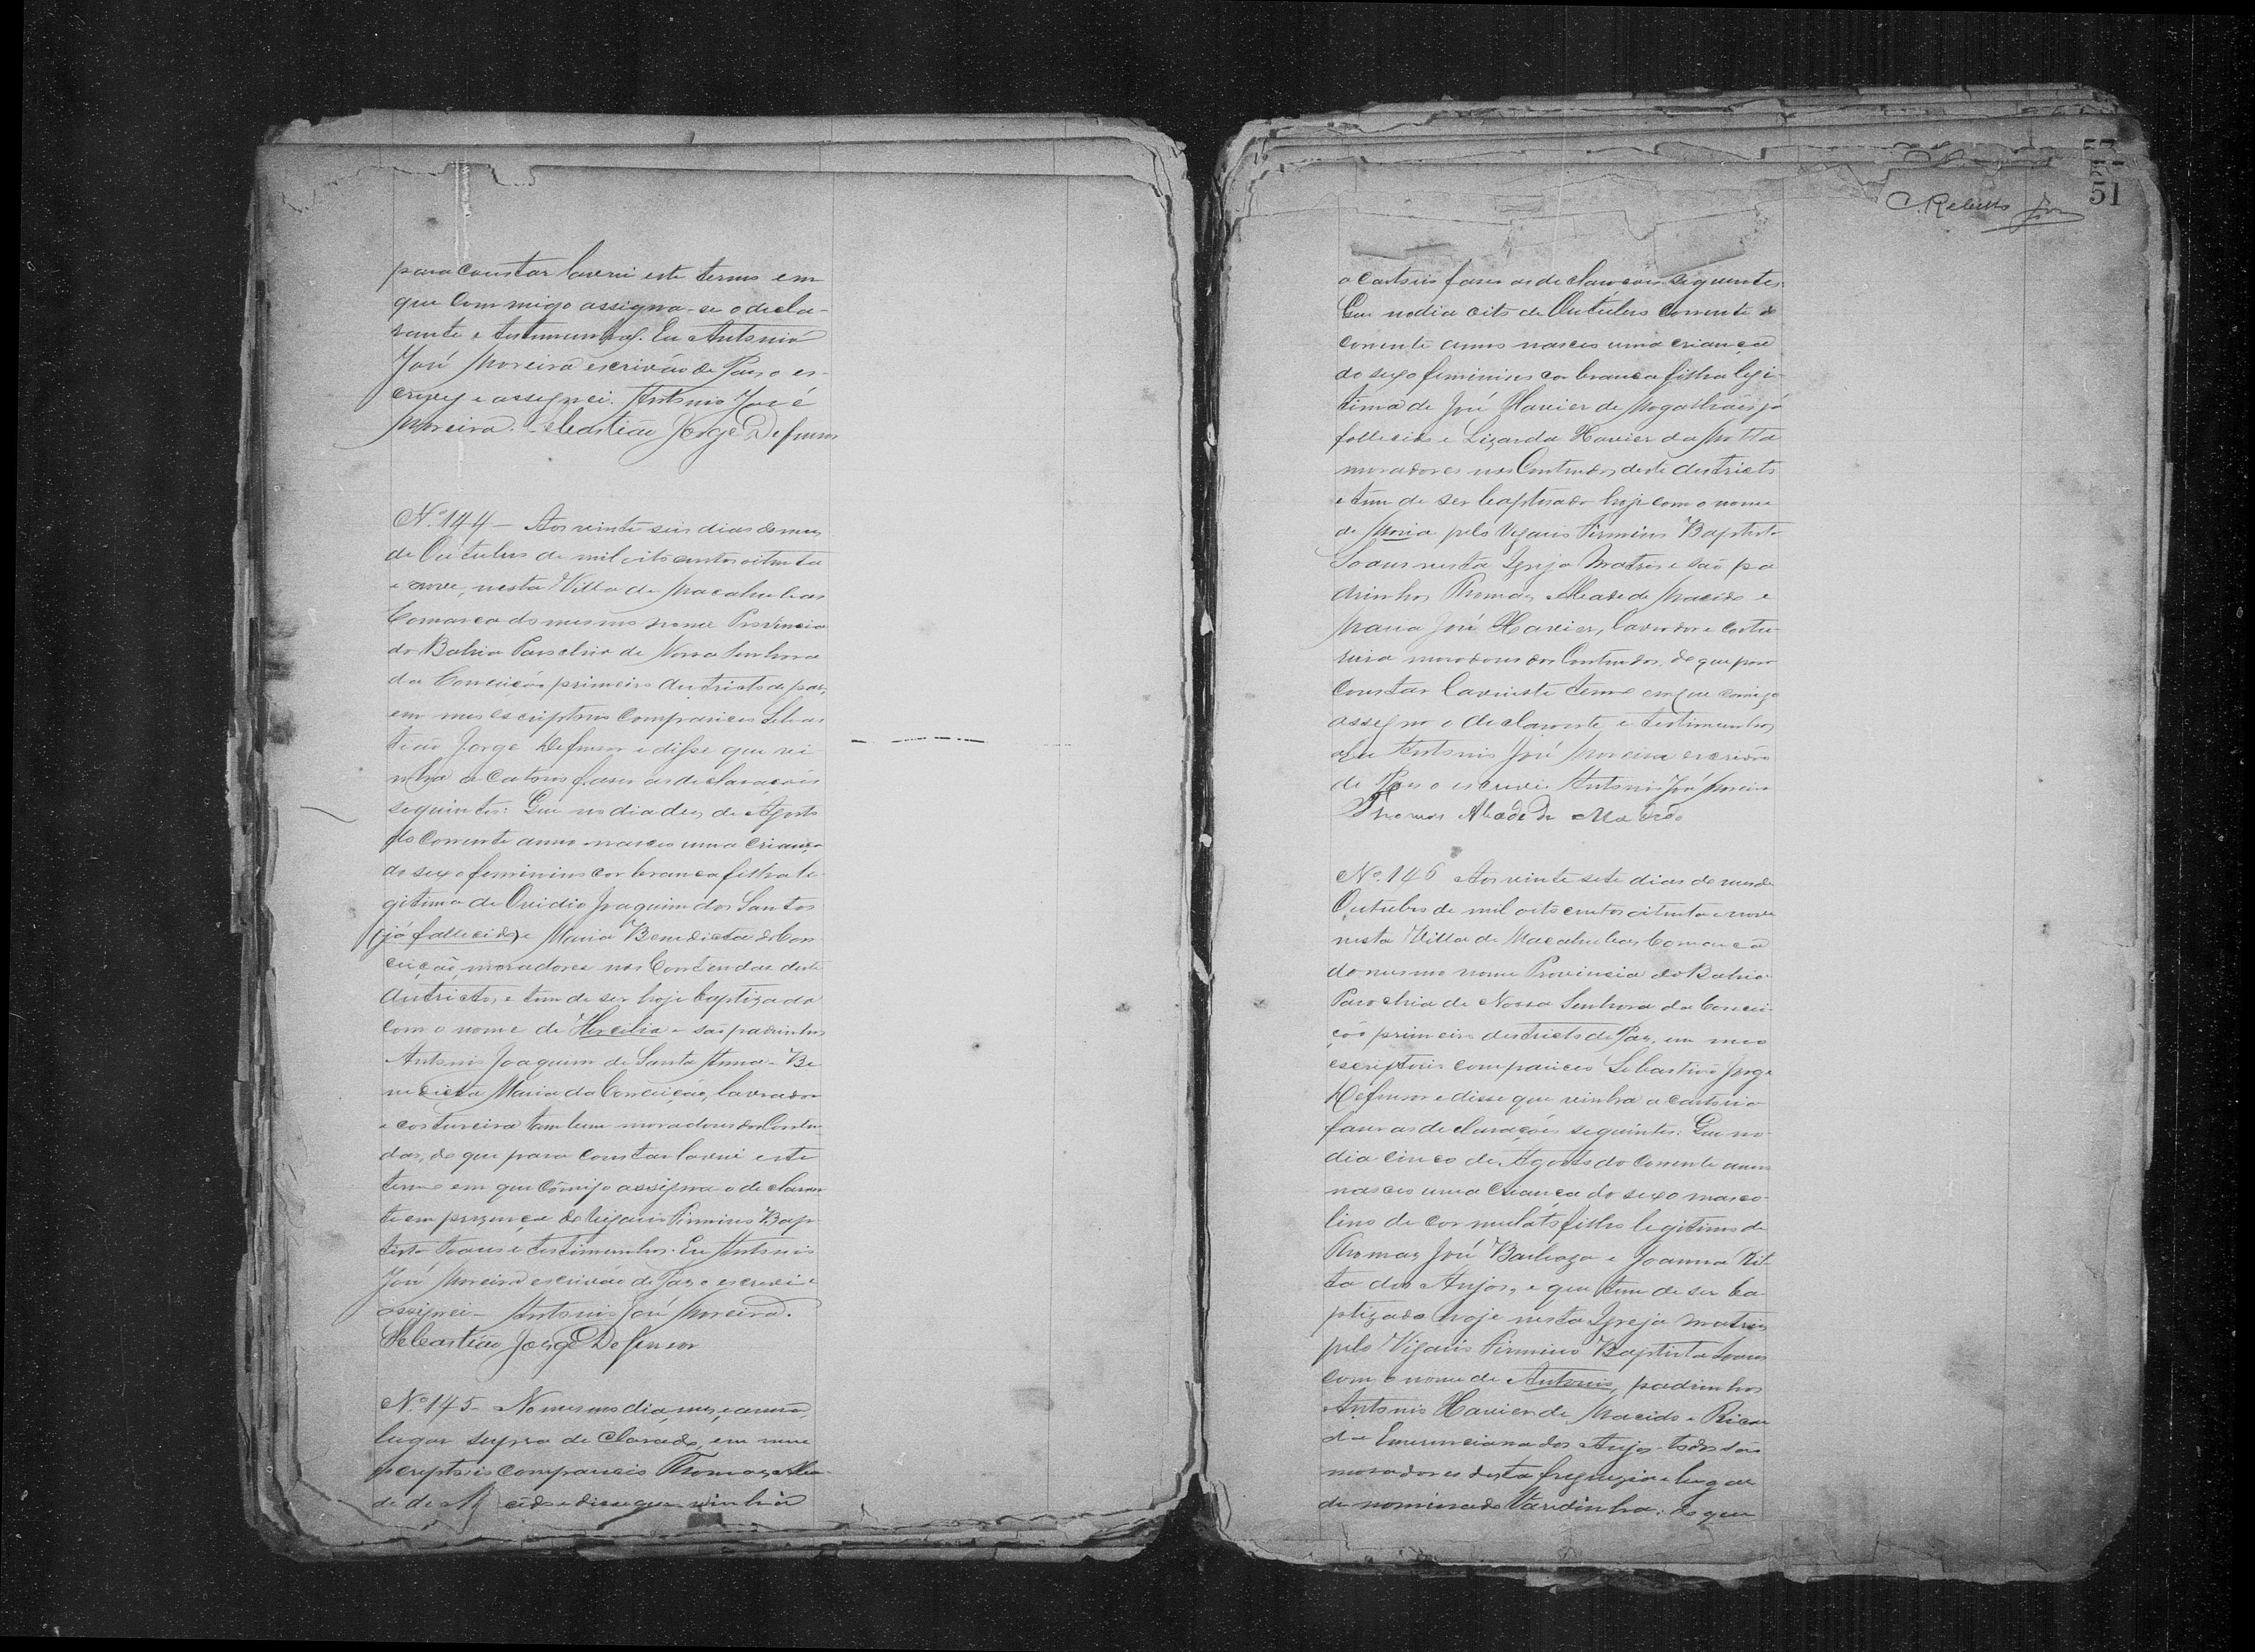 para constar lavrei este termo em
que com migo assigna-se o decla-
rante e testimunhas. Eu Antonio
José Moreira escrivão de Paz o es-
crevy e assignei. Antonio José
Moreira. Sebastião Jorge Defensor
N.º 144 – Aos vinte seis dias do mez
de Outubro de mil oito centos oitenta
e nove, nesta Villa de Macahubas
Comarca do mesmo nome Provincia
da Bahia Parochia de Nossa Senhora
da Conceição primeiro districto de paz,
em meu escriptorio compareceo Sebas
tião Jorge Defensor e disse que vi
nha a cartorio faser as declarações
seguintes: Que no dia dez de Agosto
do corrente anno nasceo uma criança
do sexo feminino cor branca filha le-
gitima de Ovidio Joaquim dos Santos
(já fallecido) e Maria Benedicta da Con
ceição, moradores nos Contendas deste
districto, e tem de ser hoje baptizada
com o nome de Hercilia e são padrinhos
Antonio Joaquim de Santa Anna – Be
nedicta Maria da Conceição, lavrador
e costureira tambem moradores dos Conten-
das, do que para constar lavrei este
termo em que comigo assigna o declaran
te em presença do Vigario Firmino Bap
tista Soares e testimunhas. Eu Antonio
José Moreira escrivão de Paz o escrevi e
assignei – Antonio José Moreira.
Sebastião Jorge Defensor
N.º 145 – No mesmo dia, mez, e anno,
lugar supra declarado, em meu
escriptorio compareceo Thomaz Aba
de de M cedo e disse que vinha
C. Rebello
51
a cartorio faser as declarações seguintes.
Que no dia oito de Outubro corrente do
corrente anno nasceo uma criança
do sexo feminino cor branca filha legi-
tima de José Xavier de Magalhães já
fallecido e Lizarda Xavier da Motta
moradores nos Contendas deste districto
e tem de ser baptisada hoje com o nome
de Maria pelo Vigario Firmino Baptista
Soares nesta Igreja Matris e são pa
drinhos Thomaz Abade de Macedo e
Maria José Xavier, lavrador e costu-
reira moradores dos Contendas. do que para
constar lavrei este termo em que comigo
assigna o declarante, e testimunhas
e Eu Antonio José Moreira escrivão
de Paz o escrevi Antonio José Moreira
Thomas Abade de Macedo
N.º 146 Aos vinte sete dias do mez de
Outubro de mil oito centos oitenta e nove
nesta Villa de Macahubas Comarca
do mesmo nome Provincia da Bahia
Parochia de Nossa Senhora da Concei-
ção primeiro districto de Paz, em meu
escriptorio compareceo Sebastião Jorge
Defensor e disse que vinha a cartorio
faser as declarações seguintes: Que no
dia cinco de Agosto do corrente anno
nasceo uma criança do sexo masco-
lino de cor mulato filho legitimo de
Thomaz José Barboza e Joanna Rit-
ta dos Anjos, e que tem de ser ba
ptizado hoje nesta Igreja Matris
pelo Vigario Firmino Baptista Soares
com o nome de Antonio, padrinhos
Antonio Xavier de Macedo e Ricar
da Emerenciana dos Anjos todos são
moradores desta freguezia e lugar
de nominado Varedinha: do que